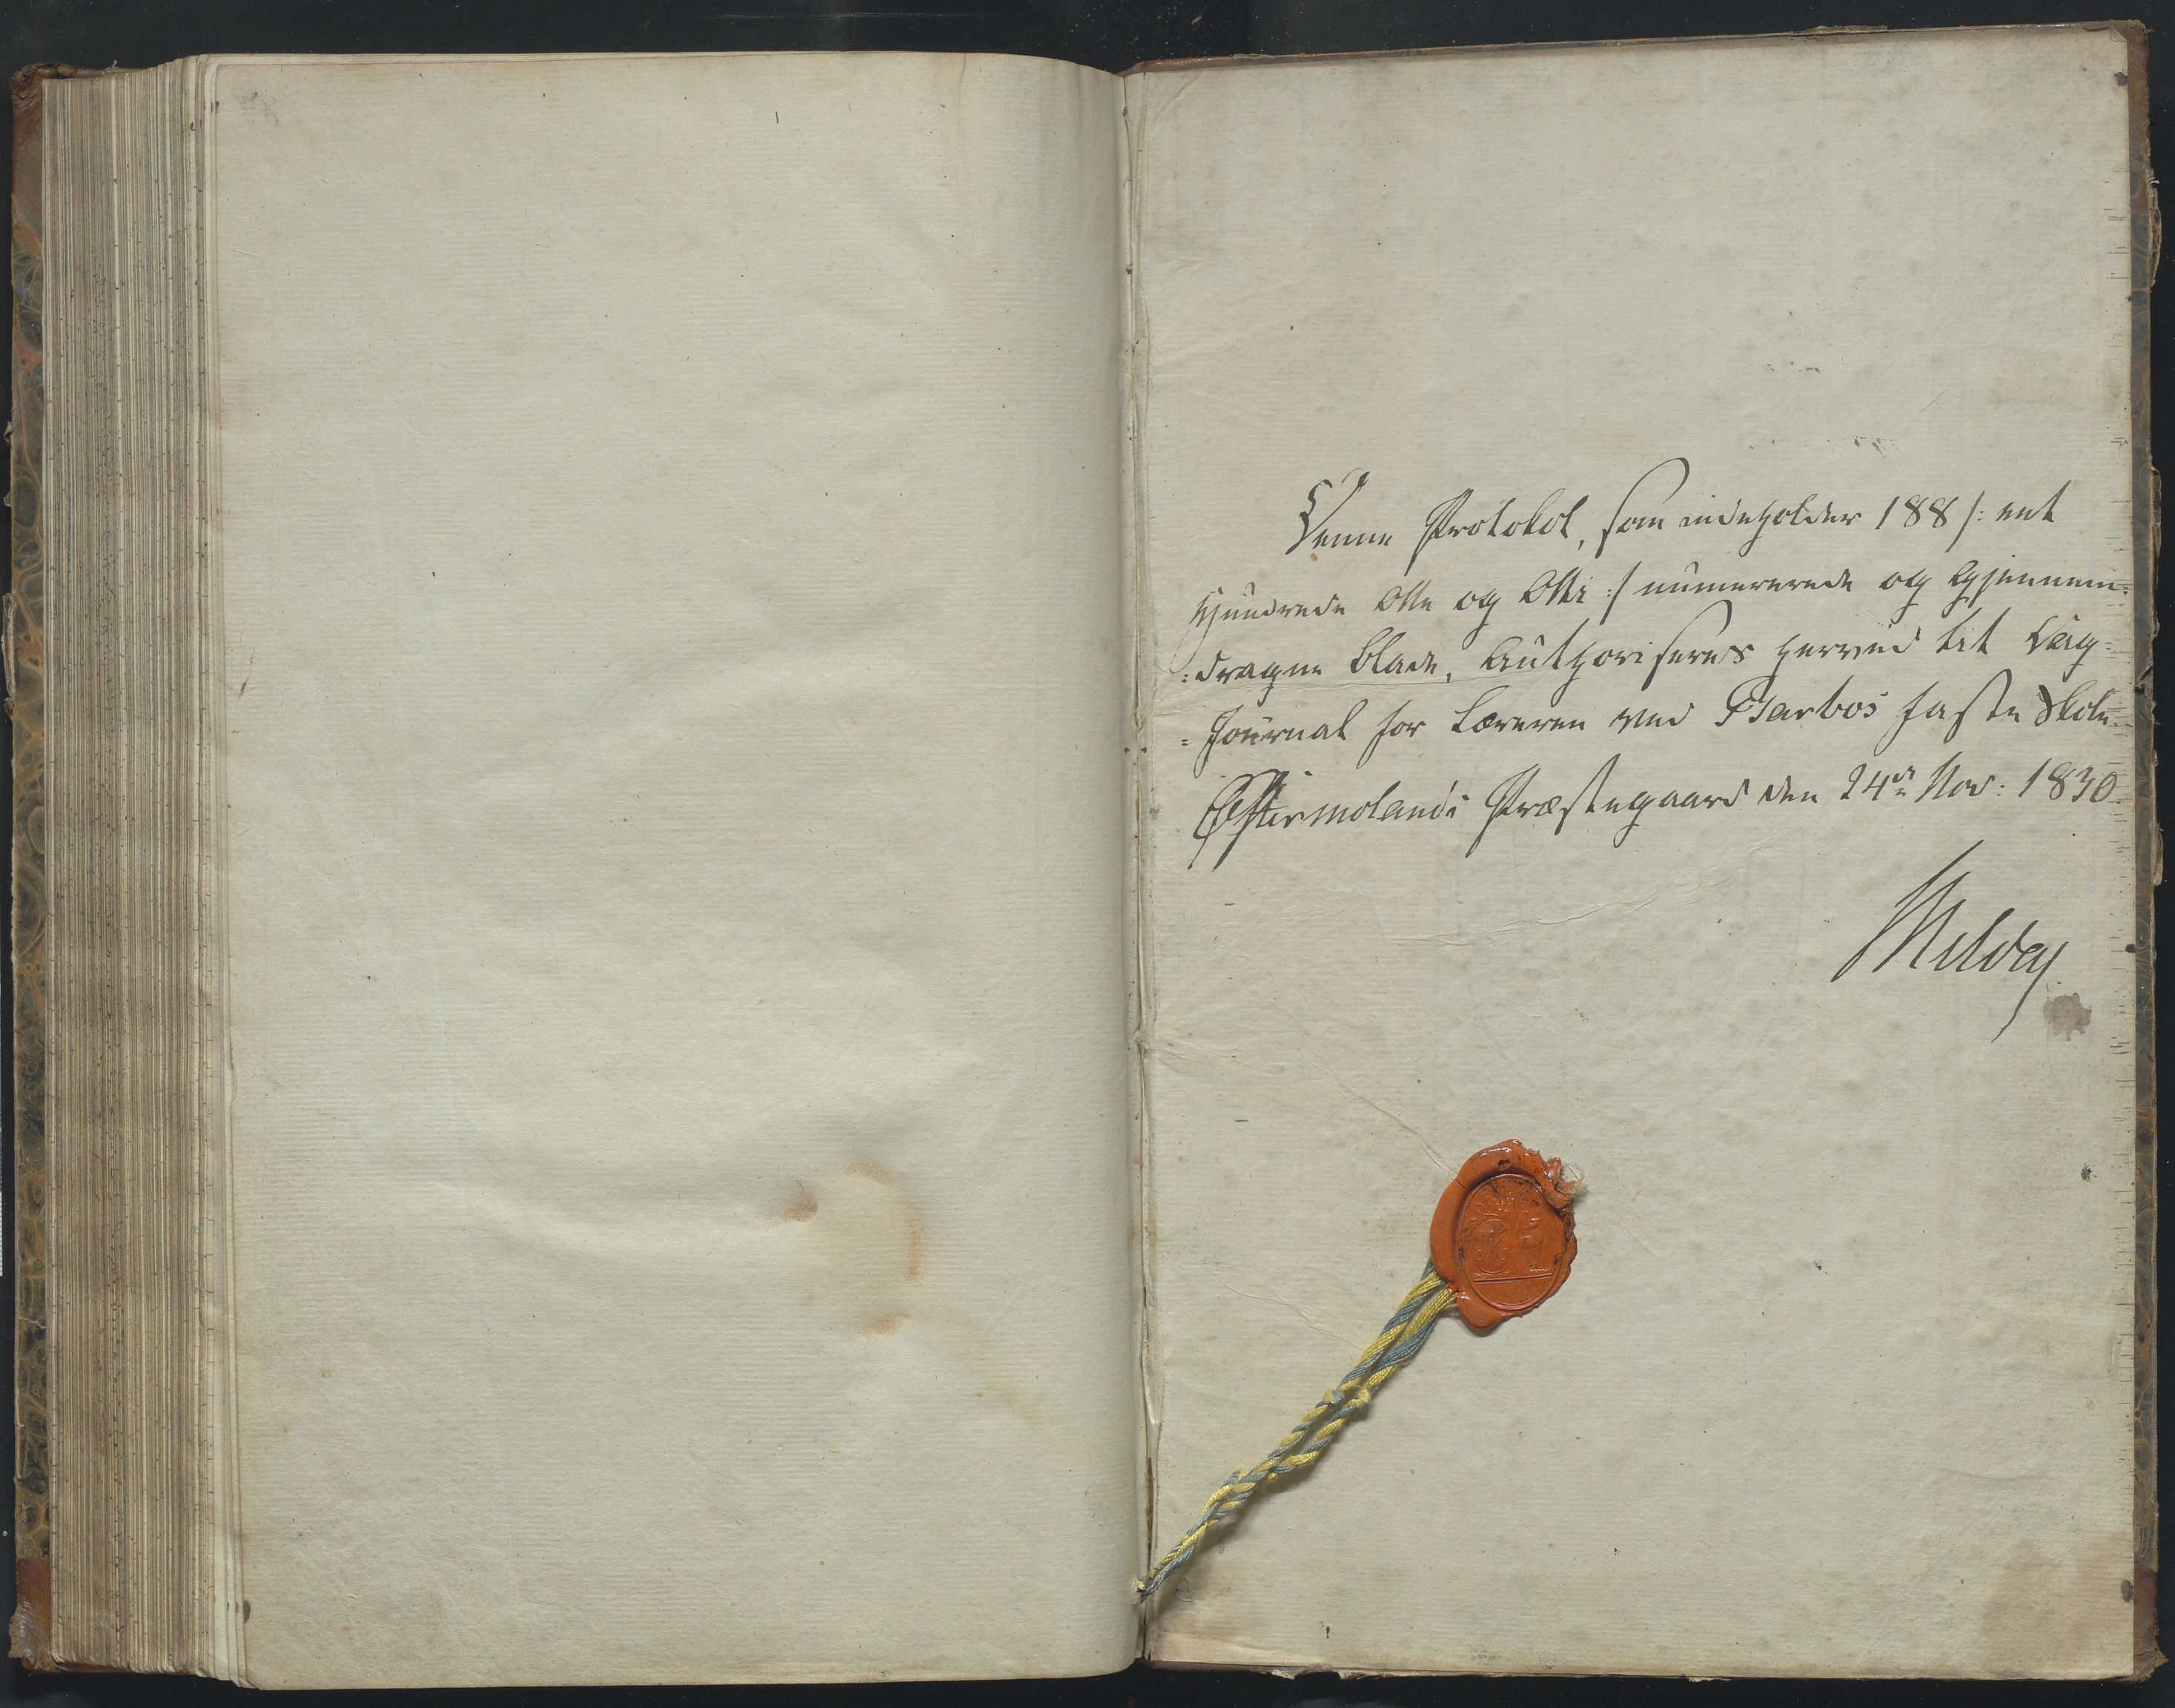 Denne Protokol, som indeholder 188 /: eet
Hundrede Otte og Otti :/ numererede og Gjennem=
=dragne Blade, Authoriseres herved til Dag=
=Journal for Læreren ved Barboe faste Skole.
Østermolands Præstegaard den 24de Nov: 1830.